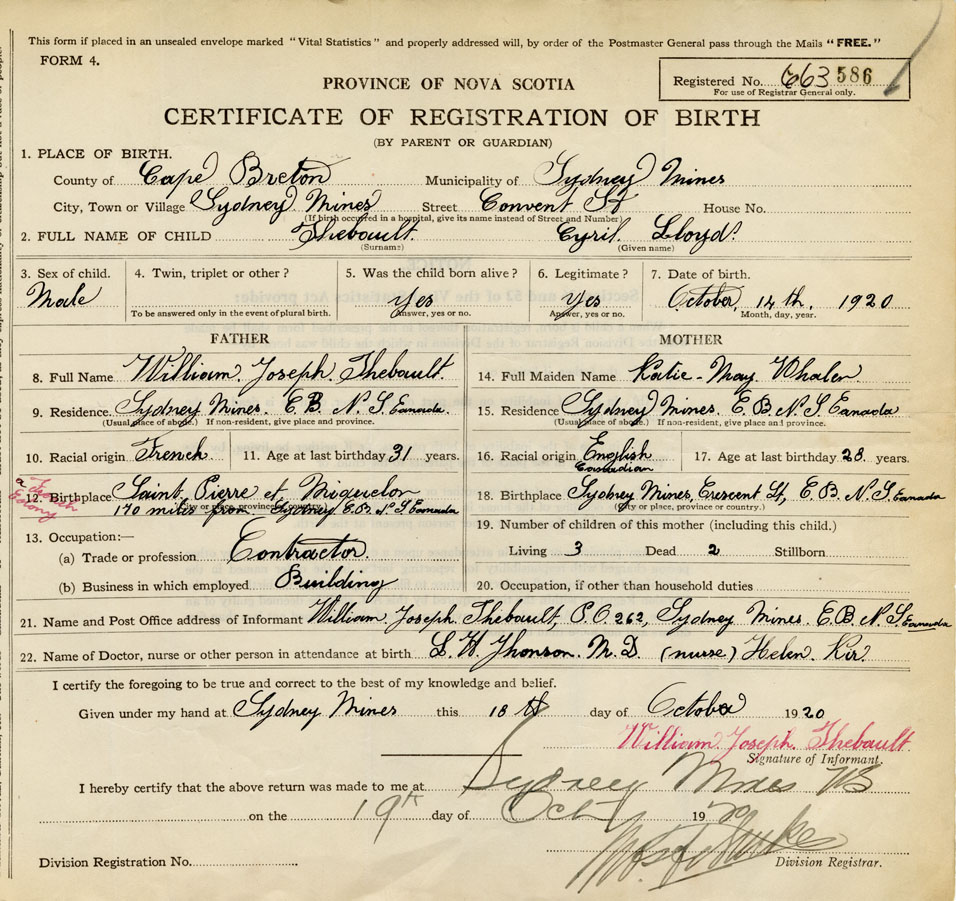 This form if placed in an unsealed envelope marked "Vital Statistics" and properly addressed will, by order of the Postmaster General pass through the Mails "FREE."
FORM 4.
Registered No. 663 586
For use of Registrar General only.
PROVINCE OF NOVA SCOTIA
CERTIFICATE OF REGISTRATION OF BIRTH
(BY PARENT OR GUARDIAN)
1. PLACE OF BIRTH.
County of Cape Breton Municipality of Sydney Mines
City, Town or Village Sydney Mines Street Convent St House No.
(If birth occurred in a hospital, give its name instead of Street and Number)
2. FULL NAME OF CHILD Thebault. Cyril. Lloyd.
(Surname) (Given name)
3. Sex of child. 4. Twin, triplet or other? 5. Was the child born alive? 6. Legitimate? 7. Date of birth.
Male Yes Yes October, 14th, 1920
To be answered only in the event of plural birth. Answer, yes or no. Answer, yes or no. Month, day, year.
FATHER MOTHER
8. Full Name William. Joseph. Thebault. 14. Full Maiden Name Katie-May Whalen
9. Residence. Sydney Mines. C.B. N.S. Canada. 15. Residence Sydney Mines. C.B N.S Canada
(Usual place of abode.) If non-resident, give place and province. (Usual place of abode.) If non-resident, give place and province.
10. Racial origin French 11. Age at last birthday 31 years. 16. Racial origin English Canadian 17. Age at last birthday 28 years.
a French Colony
12. Birthplace Saint Pierre et Miquelon 18. Birthplace Sydney Mines, Crescent St, C.B. N.S. Canada
170 miles from Sydney C.B. N.S Canada
(City or place, province or country.) (City or place, province or country.)
13. Occupation:— 19. Number of children of this mother (including this child.)
(a) Trade or profession Contractor. Living 3 Dead 2 Stillborn
(b) Business in which employed Building 20. Occupation, if other than household duties
21. Name and Post Office address of Informant William. Joseph. Thebault, P.O. 262, Sydney Mines. C.B. N.S. Canada
22. Name of Doctor, nurse or other person in attendance at birth L. W. Jhonson. M.D. (nurse) Helen. Kir.
I certify the foregoing to be true and correct to the best of my knowledge and belief.
Given under my hand at Sydney Mines this 18 th day of October 1920
William. Joseph. Thebault.
Signature of Informant.
I hereby certify that the above return was made to me at Sydney Mines
on the 19th day of Oct 1920
Division Registration No. Division Registrar.